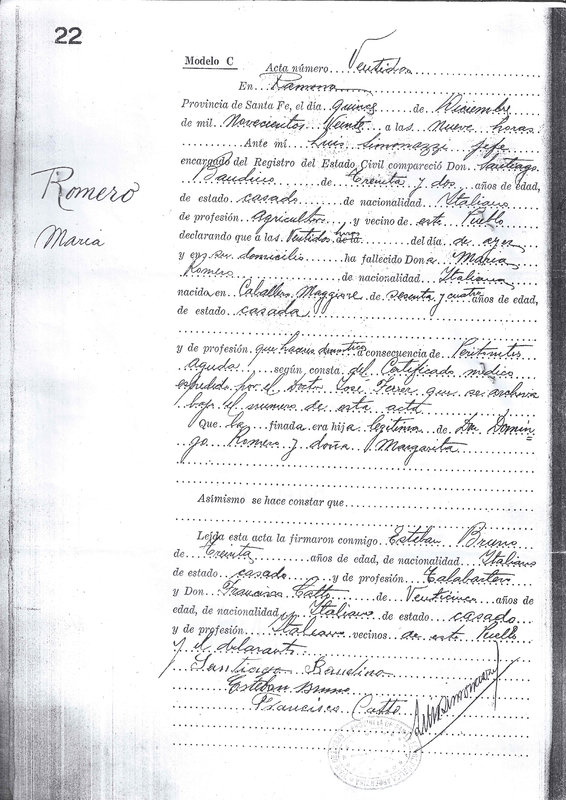 22
Modelo C
Acta número Ventidos
En Ramona
Provincia de Santa Fe, el día quince de Diciembre
de mil Novecientos Veinte a las Nueve horas
Ante mi Luis Simonazzi Jefe
encargado del Registro del Estado Civil compareció Don Santiago
Baudino de Treinta y dos años de edad,
de estado casado de nacionalidad Italiano
de profesión Agricultor y vecino de este Pueblo
declarando que a las Ventidos horas del día de ayer
y en su domicilio ha fallecido Dona Maria
Romero de nacionalidad Italiana
nacido en Caballer Maggiore de sesenta y cuatro años de edad,
de estado casada
y de profesión que haceres domestico a consecuencia de Peritonitis
Aguda según consta del Certificado medico
expedido por el Doctor José Ferrer que se archiva
bajo el numero de esta acta
Que la finada era hija legitima de Dn Domin-
go Romero y doña Margarita
Asimismo se hace constar que
Leída esta acta la firmaron conmigo Esteban Bruno
de Treinta años de edad, de nacionalidad Italiano
de estado casado y de profesión Talabartero
y Don Francisco Catto de años de
edad, de nacionalidad Italiano de estado casado
y de profesión Italiano vecinos de este Pueblo
y el declarante
Santiago Baudino
Esteban Bruno
Francisco Catto
Romero
Maria